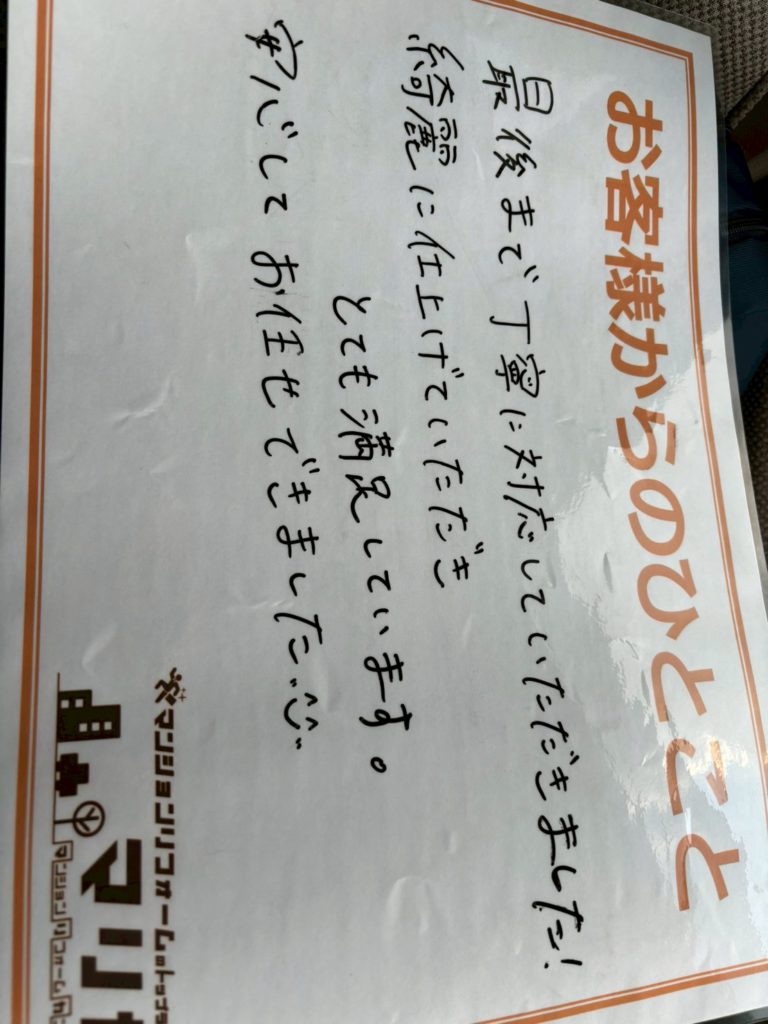 お客様からのひとこと
最後まで丁寧に対応していただきました!
綺麗に仕上げていただき
とても満足しています。
安心してお任せできました
マンションリフォームのトップブラ
マリ
マンションリフォーム